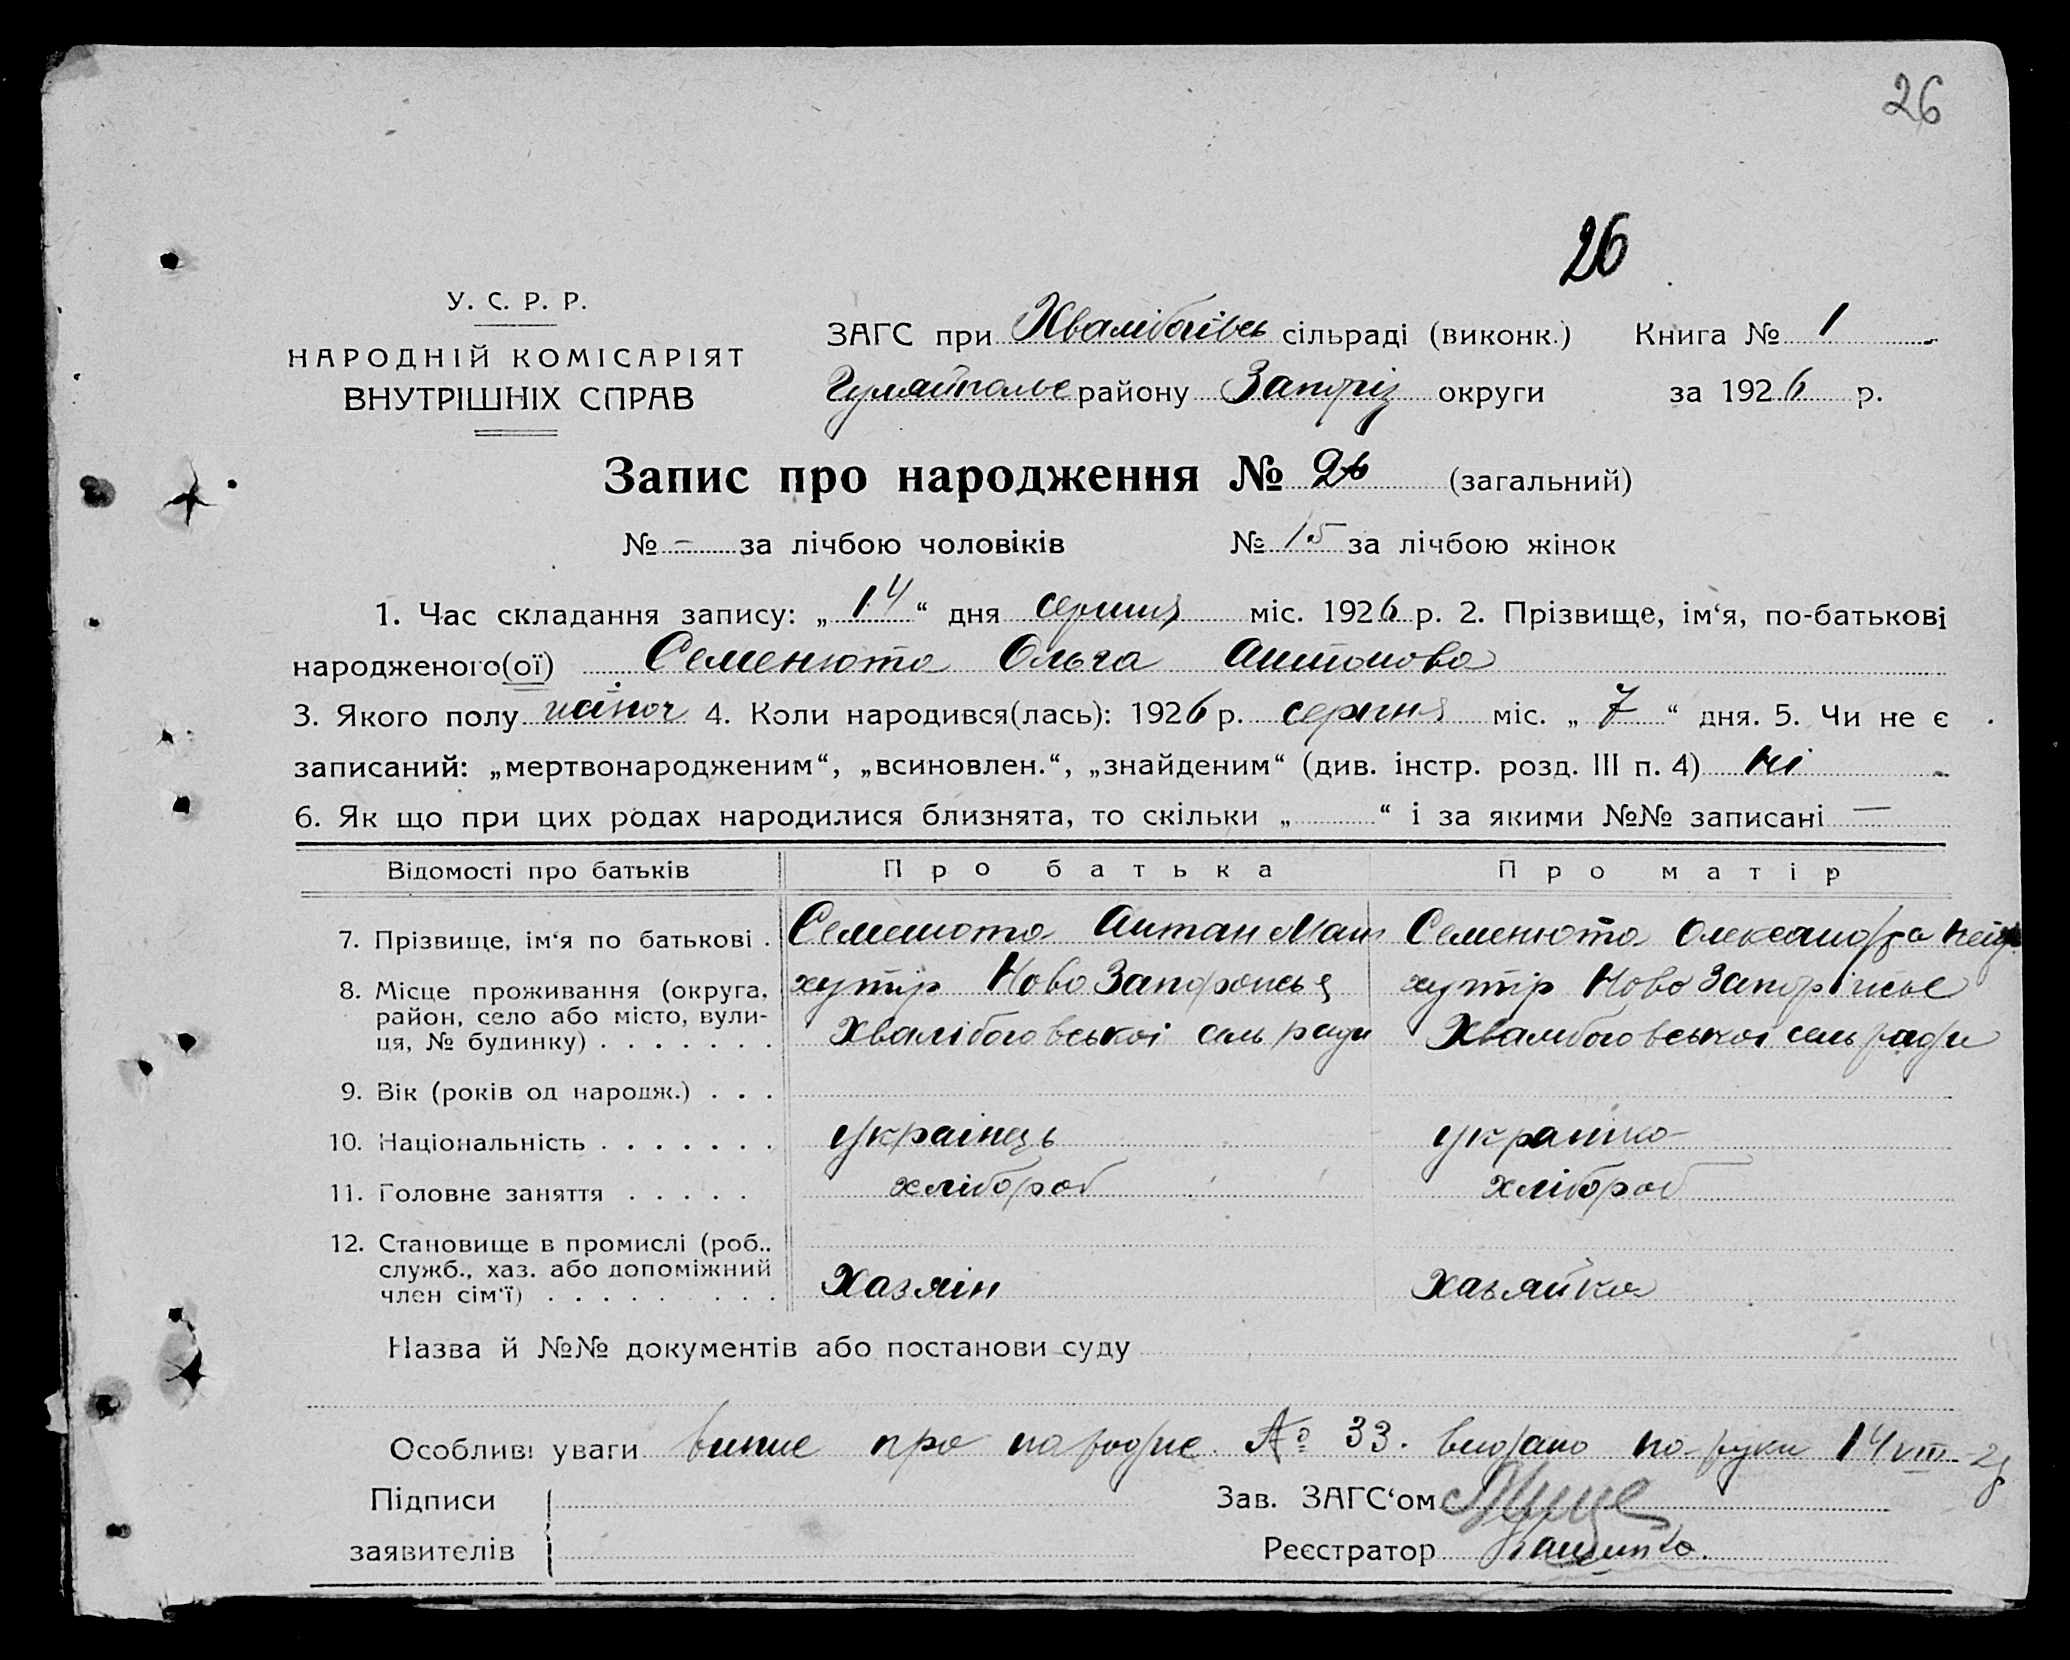 26
26
У. С. Р. Р.
НАРОДНІЙ КОМІСАРІЯТ
ВНУТРІШНІХ СПРАВ
ЗАГС при Хвалібогівсь сільраді (виконк.) Книга № 1
Гуляйполье району Запоріз округи за 1926 р.
Запис про народження № 26 (загальний)
№ - за лічбою чоловіків № 15 за лічбою жінок
1. Час складання запису: „14“ дня серпня міс. 1926 р. 2. Прізвище, ім‘я, по-батькові
народженого(ої) Семенюта Ольга Антонова
3. Якого полу жіноч 4. Коли народився(лась): 1926 р. серпня міс. „7“ дня. 5. Чи не є
записаний: „мертвонародженим“, „всиновлен.“, „знайденим“ (див. інстр. розд. III п. 4) ні
6. Як що при цих родах народилися близнята, то скільки „ “ і за якими №№ записані —
Відомості про батьків Про батька Про матір
7. Прізвище, ім‘я по батькові . Семенюта Антан Семенюта Олександра
8. Місце проживання (округа, район, село або місто, вулиця, № будинку) . . . . . . .
хутір Ново Запорожсья хутір Ново Запоріжсье
Хвалібоговської сель ради Хвалібоговської сель ради
9. Вік (років од народж.) . . .
10. Національність . . . . . . . українець українка
11. Головне заняття . . . . . хлібороб хлібороб
12. Становище в промислі (роб.. служб., хаз. або допоміжний член сім‘ї) . . . . . . . . .
Хазяін Хазяйка
Назва й №№ документів або постанови суду
Особливі уваги випис про народже № 33. видано на руки 14 VIII - 26
Підписи Зав. ЗАГС‘ом
заявителів Реєстратор